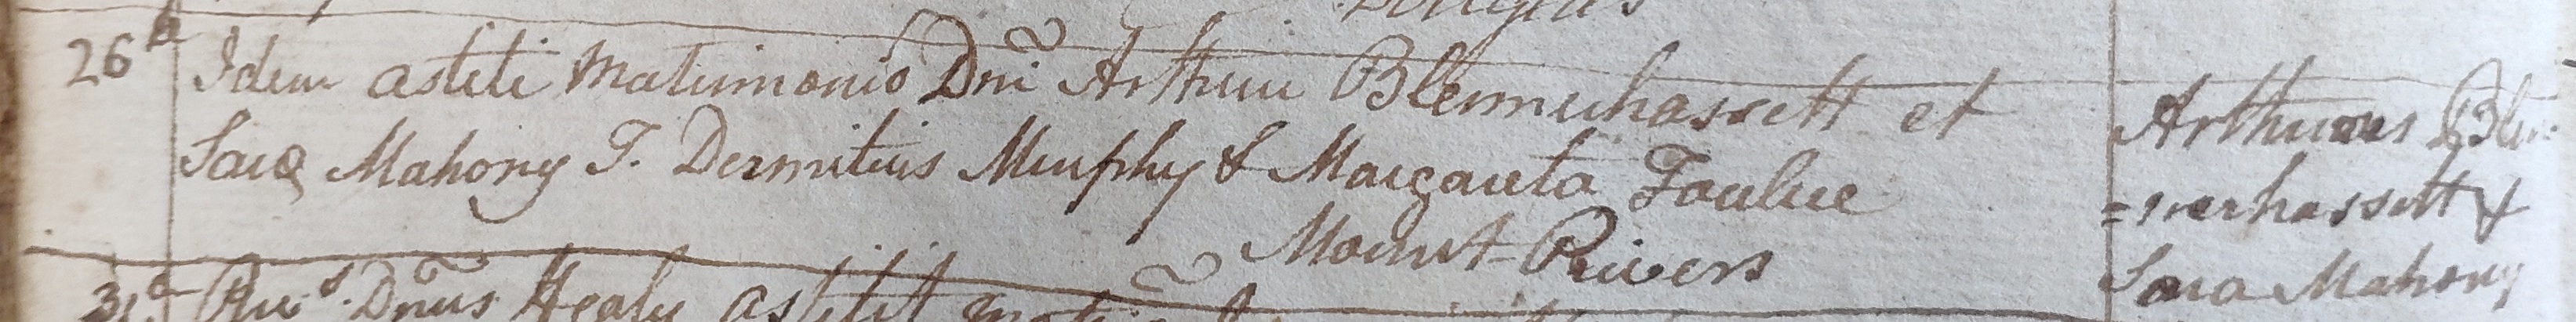 Douglas
26th Idem astiti Matrimonio Dni Arthuri Blennerhassett et
Sara Mahony T. Dermitius Murphy & Margarita Foulue
Mount Rivers
Arthurus Blen
=nerhassett &
Sara Mahony
31st Rus. Dnus Healy astitit